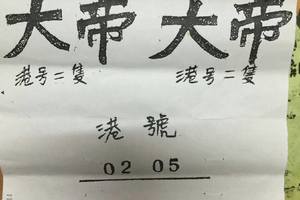 大帝 大帝
港号二隻 港号二隻
港號
02 05